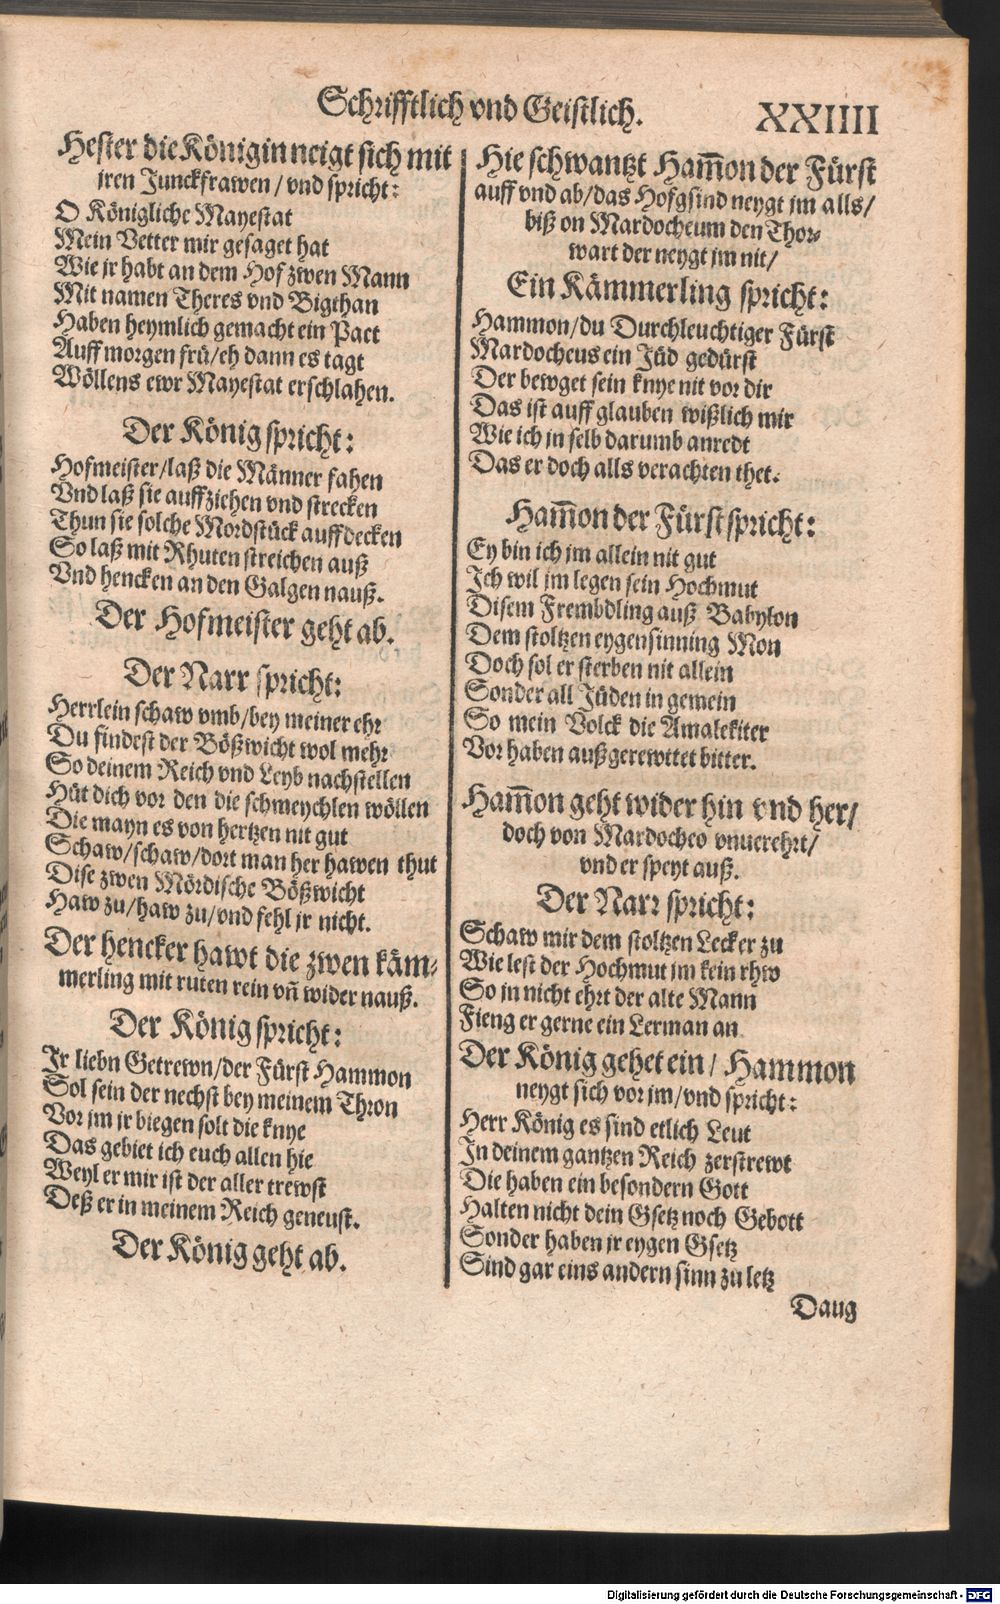 Schrifftlich vnd Geistlich.
XXIIII
Hester die Königin neigt sich mit
jren Junckfrawen / vnd spricht:
O Königliche Mayestat
Mein Vetter mir gesaget hat
Wie jr habt an dem Hof zwen Mann
Mit namen Theres vnd Bigthan
Haben heymlich gemacht ein Pact
Auff morgen frü/eh dann es tagt
Wöllens ewr Mayestat erschlahen.
Der König spricht:
Hofmeister/laß die Männer fahen
Vnd laß sie auffziehen vnd strecken
Thun sie solche Mordstück auffdecken
So laß mit Rhuten streichen auß
Vnd hencken an den Galgen nauß.
Der Hofmeister geht ab.
Der Narr spricht:
Herrlein schaw vmb/bey meiner ehr
Du findest der Bößwicht wol mehr
So deinem Reich vnd Leyb nachstellen
Hüt dich vor den die schmeychlen wöllen
Die mayn es von hertzen nit gut
Schaw/schaw/dort man her hawen thut
Dise zwen Mördische Bößwicht
Haw zu/haw zu/vnd fehl jr nicht.
Der hencker hawt die zwen käm⸗
merling mit ruten rein vñ wider nauß.
Der König spricht:
Jr liebn Getrewn/der Fürst Hammon
Sol sein der nechst bey meinem Thron
Vor jm jr biegen solt die knye
Das gebiet ich euch allen hie
Weyl er mir ist der aller trewst
Deß er in meinem Reich geneust.
Der König geht ab.
Hie schwantzt Ham̄on der Fürst
auff vnd ab/das Hofgsind neygt jm alls/
biß on Mardocheum den Thor⸗
wart der neygt jm nit/
Ein Kämmerling spricht:
Hammon/du Durchleuchtiger Fürst
Mardocheus ein Jüd gedürst
Der bewget sein knye nit vor dir
Das ist auff glauben wißlich mir
Wie ich jn selb darumb anredt
Das er doch alls verachten thet.
Ham̄on der Fürst spricht:
Ey bin ich jm allein nit gut
Ich wil jm legen sein Hochmut
Disem Frembdling auß Babylon
Dem stoltzen eygensinning Mon
Doch sol er sterben nit allein
Sonder all Jüden in gemein
So mein Volck die Amalekiter
Vor haben außgerewttet bitter.
Ham̄on geht wider hin vnd her/
doch von Mardocheo vnuerehrt/
vnd er speyt auß.
Der Narr spricht:
Schaw mir dem stoltzen Lecker zu
Wie lest der Hochmut jm kein rhw
So jn nicht ehrt der alte Mann
Fieng er gerne ein Lerman an
Der König gehet ein/ Hammon
neygt sich vor jm/vnd spricht:
Herr König es sind etlich Leut
In deinem gantzen Reich zerstrewt
Die haben ein besondern Gott
Halten nicht dein Gsetz noch Gebott
Sonder haben jr eygen Gsetz
Sind gar eins andern sinn zu letz
Daug
Digitalisierung gefördert durch die Deutsche Forschungsgemeinschaft - DFG